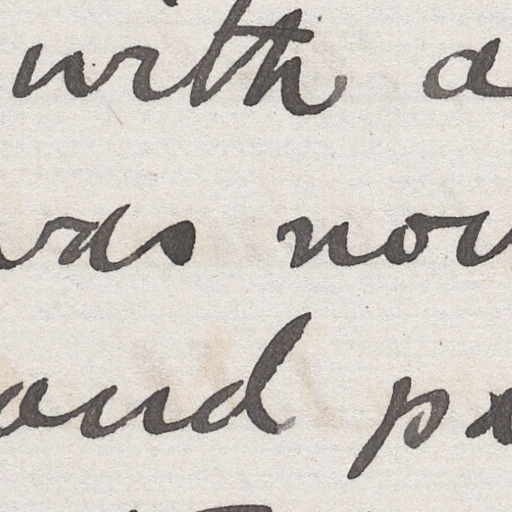 with a
was now
and